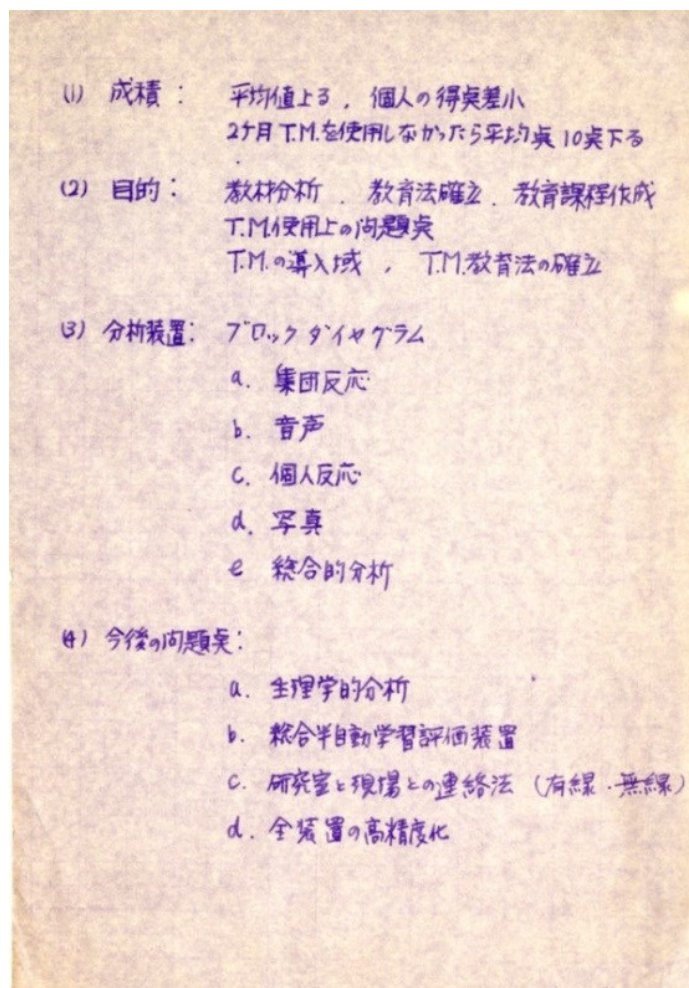 (1) 成績： 平均値上る ． 個人の得点差小
2ケ月T.M.を使用しなかったら平均点10点下る
(2) 目的： 教材分析 ． 教育法確立 ． 教育課程作成
T.M.使用上の問題点
T.M.の導入域 ， T.M.教育法の確立
(3) 分析装置： ブロックダイヤグラム
a. 集団反応
b. 音声
c. 個人反応
d. 写真
e 総合的分析
(4) 今後の問題点：
a. 生理学的分析
b. 総合半自動学習評価装置
c. 研究室と現場との連絡法 (有線・無線)
d. 全装置の高精度化